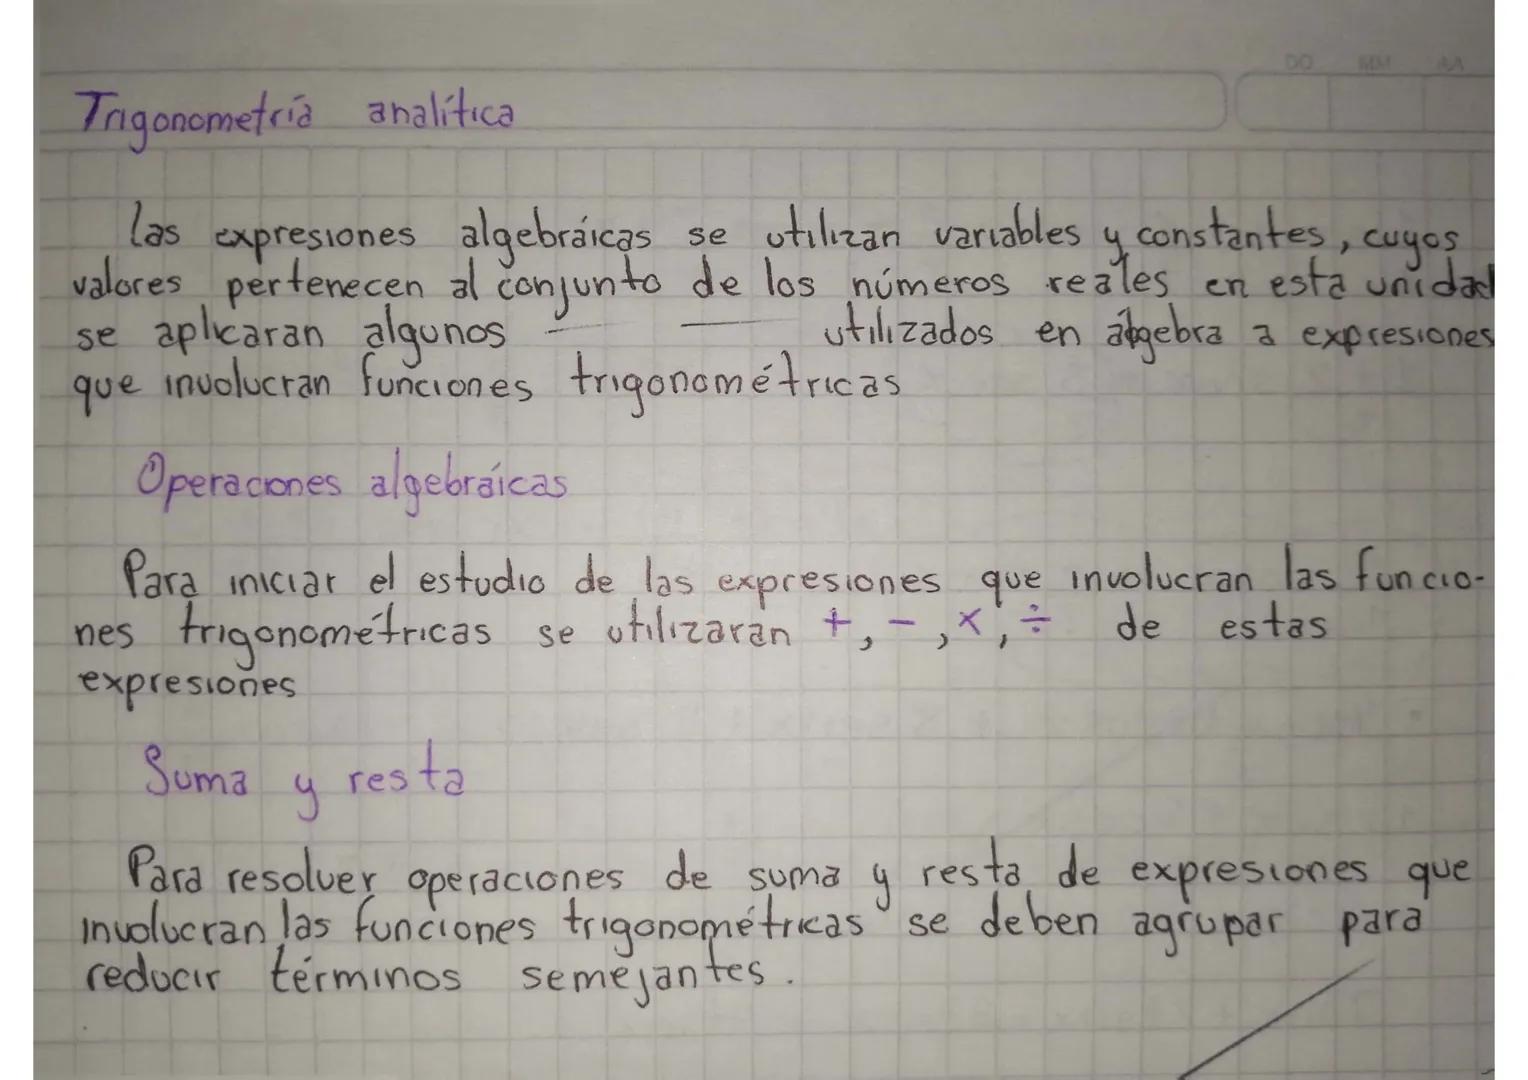 DD MM AA
Trigonometría analítica
las expresiones algebráicas se utilizan variables y constantes, cuyos
valores pertenecen al conjunto de los números reales en esta unidad
se aplicaran algunos utilizados en álgebra a expresiones
que involucran funciones trigonométricas
Operaciones algebráicas
Para iniciar el estudio de las expresiones que involucran las funcio-
nes trigonométricas se utilizaran +, -, ×, ÷ de estas
expresiones
Suma y resta
Para resolver operaciones de suma y resta de expresiones que
involucran las funciones trigonométricas se deben agrupar para
reducir términos semejantes.